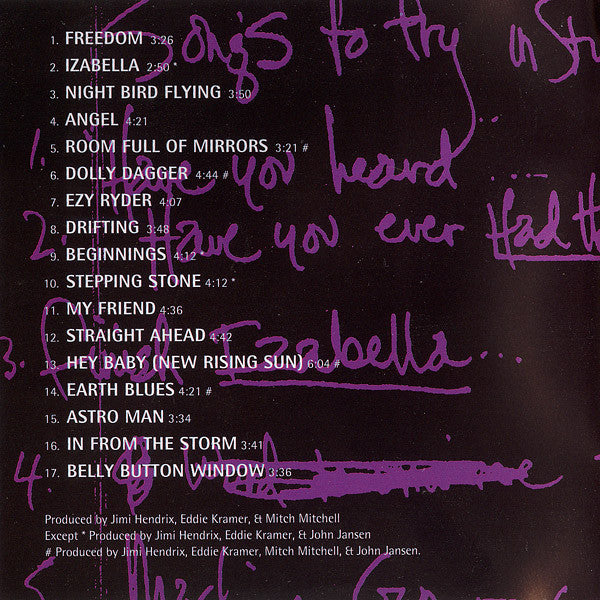 Songs to try in St
1. FREEDOM 3:26
2. IZABELLA 2:50 *
3. NIGHT BIRD FLYING 3:50
4. ANGEL 4:21
5. ROOM FULL OF MIRRORS 3:21 #
6. DOLLY DAGGER 4:44 #
7. EZY RYDER 4:07
8. DRIFTING 3:48
9. BEGINNINGS 4:12 *
10. STEPPING STONE 4:12 *
11. MY FRIEND 4:36
12. STRAIGHT AHEAD 4:42
13. HEY BABY (NEW RISING SUN) 6:04 #
14. EARTH BLUES 4:21 #
15. ASTRO MAN 3:34
16. IN FROM THE STORM 3:41
17. BELLY BUTTON WINDOW 3:36
1. Have you heard ....
2. Have you ever Had th
3. Finish Izabella ...
4.
5.
Produced by Jimi Hendrix, Eddie Kramer, & Mitch Mitchell
Except * Produced by Jimi Hendrix, Eddie Kramer, & John Jansen
# Produced by Jimi Hendrix, Eddie Kramer, Mitch Mitchell, & John Jansen.